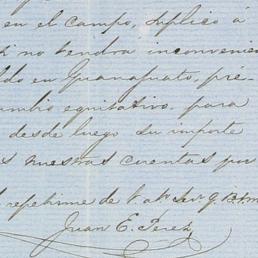 en el campo, suplico á
no tendra inconvenie
do en Guanajuato, pré-
ambio equitativo. para
desde luego su importe
s nuestras cuentas por
repetirme de V. afo Servr. q. B.s.m.
Juan E. Perez